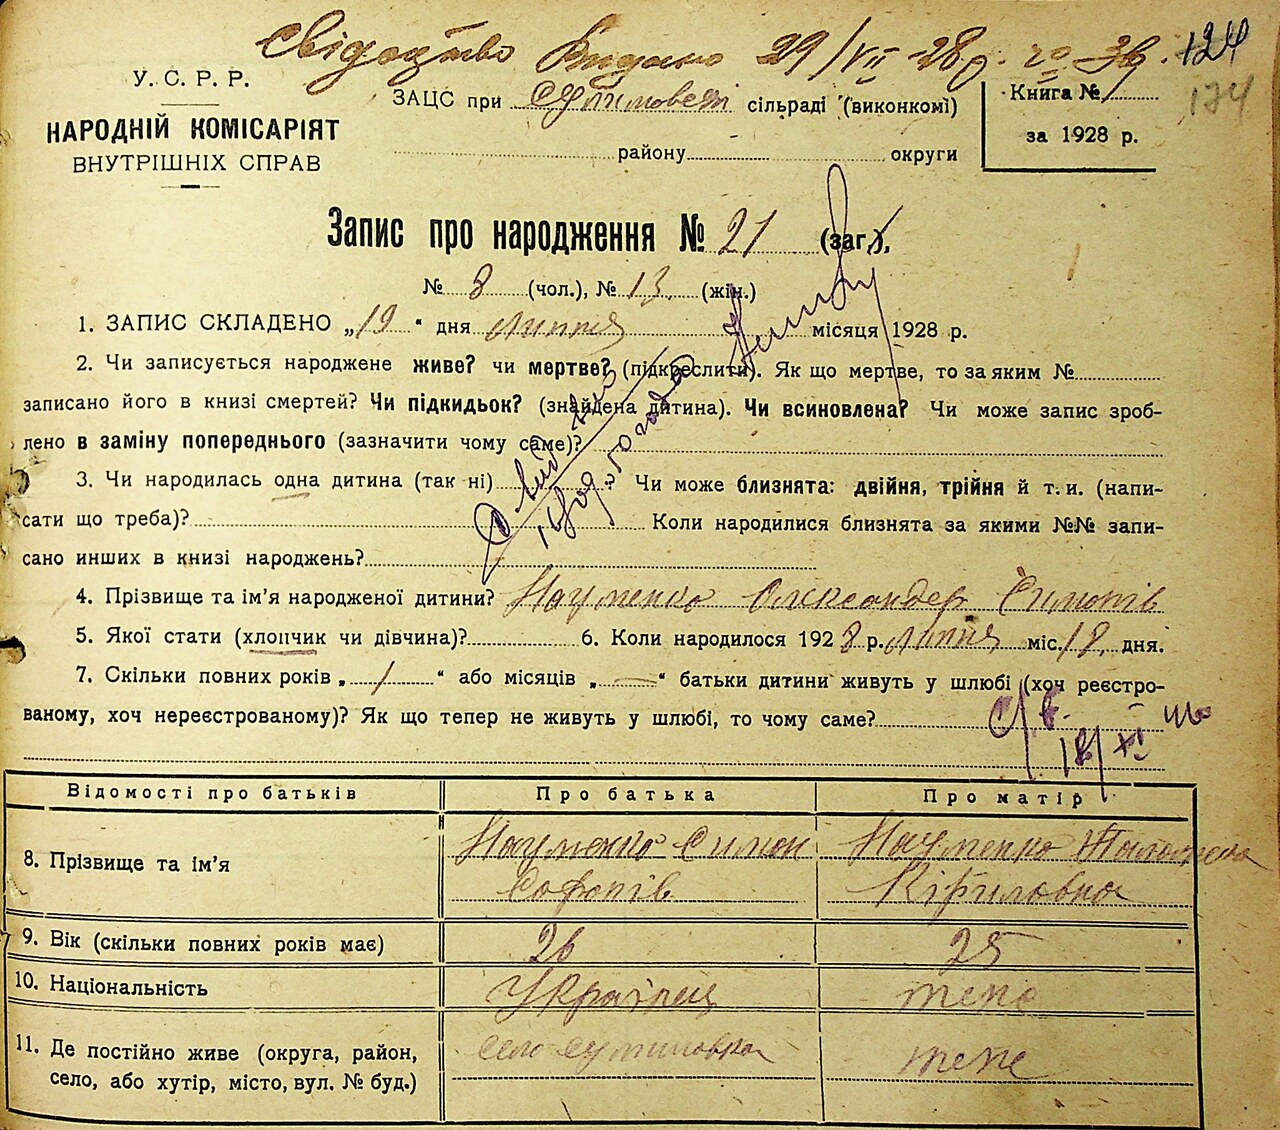 Свідоцтво Видано 29/VII-28р. 124
У.С.Р.Р.
ЗАЦС при сільраді (виконкомі)
Книга №
174
НАРОДНІЙ КОМІСАРІЯТ
за 1928 р.
ВНУТРІШНІХ СПРАВ
району округи
Запис про народження № 21 (заг.),
№ 8 (чол.), № 13 (жін.)
1. ЗАПИС СКЛАДЕНО „19“ дня липня місяця 1928 р.
2. Чи записується народжене живе? чи мертве? (підкреслити). Як що мертве, то за яким №
записано його в книзі смертей? Чи підкидьок? (знайдена дитина). Чи всиновлена? Чи може запис зроб-
лено в заміну попереднього (зазначити чому саме)?
3. Чи народилась одна дитина (так ні) ? Чи може близнята: двійня, трійня й т. и. (напи-
сати що треба)? Коли народилися близнята за якими №№ запи-
сано инших в книзі народжень?
4. Прізвище та ім’я народженої дитини? Науменко Олександер Симонів
5. Якої стати (хлопчик чи дівчина)? 6. Коли народилося 1928 р. липня міс. 18 дня.
7. Скільки повних років „1“ або місяців „—“ батьки дитини живуть у шлюбі (хоч реєстро-
ваному, хоч нереєстрованому)? Як що тепер не живуть у шлюбі, то чому саме?
18/XI
Відомості про батьків Про батька Про матір
8. Прізвище та ім’я Науменко Симон Науменко
Софонів Кіриловна
9. Вік (скільки повних років має) 26 25
10. Національність Українец теж
11. Де постійно живе (округа, район, село теже
село, або хутір, місто, вул. № буд.)